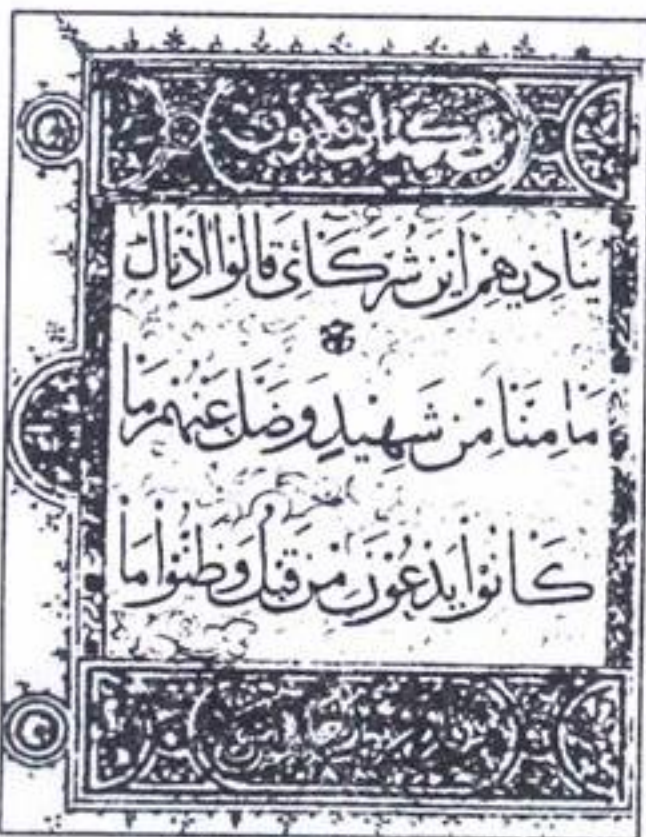 في كتاب مكنون
يُنَادِيهِمْ اَيْنَ شُرَكَائِي قَالُوا اذَنَّاكَ
مَا مِنَّا مِنْ شَهِيْدٍ وَضَلَّ عَنْهُمْ مَا
كَانُوْا يَدْعُوْنَ مِنْ قَبْلُ وَظَنُّوْا مَا